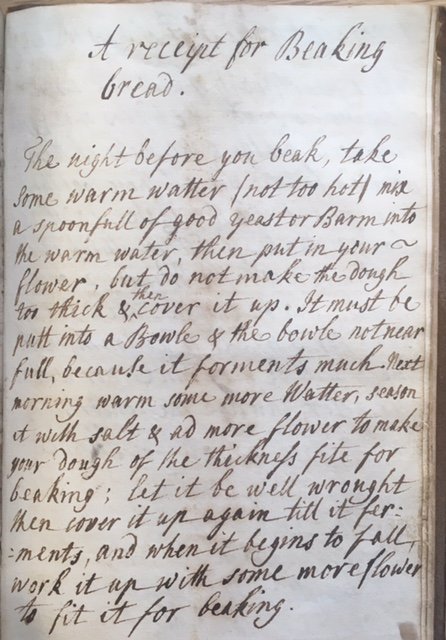 A receipt for Beaking
bread.
The night before you beak, take
some warm watter (not too hot) mix
a spoonfull of good yeast or Barm into
the warm water, then put in your ~
flower, but do not make the dough
too thick & then cover it up. It must be
putt into a Bowle & the bowle not near
full, because it forments much. Next
morning warm some more Watter, season
it with salt & ad more flower to make
your dough of the thickness fite for
beaking; let it be well wrought
then cover it up again till it fer=
=ments, and when it begins to fall,
work it up with some more flower
to fit it for beaking.